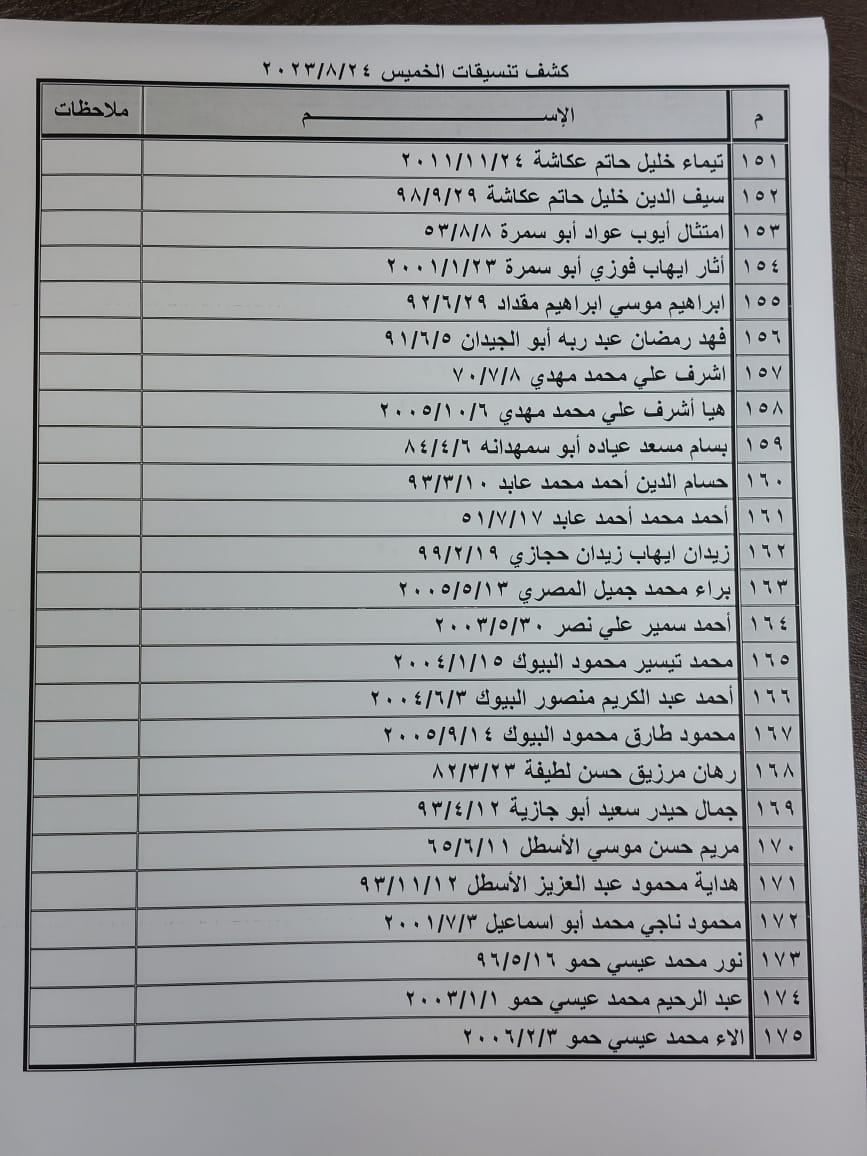 كشف تنسيقات الخميس ٢٠٢٣/٨/٢٤
م الإســــــــــم ملاحظات
١٥١ تيماء خليل حاتم عكاشة ٢٠١١/١١/٢٤
١٥٢ سيف الدين خليل حاتم عكاشة ٩٨/٩/٢٩
١٥٣ امتثال أيوب عواد أبو سمرة ٥٣/٨/٨
١٥٤ أثار ايهاب فوزي أبو سمرة ٢٠٠١/١/٢٣
١٥٥ ابراهيم موسي ابراهيم مقداد ٩٢/٦/٢٩
١٥٦ فهد رمضان عبد ربه أبو الجيدان ٩١/٦/٥
١٥٧ اشرف علي محمد مهدي ٧٠/٧/٨
١٥٨ هيا أشرف علي محمد مهدي ٢٠٠٥/١٠/٦
١٥٩ بسام مسعد عياده أبو سمهدانه ٨٤/٤/٦
١٦٠ حسام الدين أحمد محمد عابد ٩٣/٣/١٠
١٦١ أحمد محمد أحمد عابد ٥١/٧/١٧
١٦٢ زيدان ايهاب زيدان حجازي ٩٩/٢/١٩
١٦٣ براء محمد جميل المصري ٢٠٠٥/٥/١٣
١٦٤ أحمد سمير علي نصر ٢٠٠٣/٥/٣٠
١٦٥ محمد تيسير محمود البيوك ٢٠٠٤/١/١٥
١٦٦ أحمد عبد الكريم منصور البيوك ٢٠٠٤/٦/٣
١٦٧ محمود طارق محمود البيوك ٢٠٠٥/٩/١٤
١٦٨ رهان مرزيق حسن لطيفة ٨٢/٣/٢٣
١٦٩ جمال حيدر سعيد أبو جازية ٩٣/٤/١٢
١٧٠ مريم حسن موسي الأسطل ٦٥/٦/١١
١٧١ هداية محمود عبد العزيز الأسطل ٩٣/١١/١٢
١٧٢ محمود ناجي محمد أبو اسماعيل ٢٠٠١/٧/٣
١٧٣ نور محمد عيسي حمو ٩٦/٥/١٦
١٧٤ عبد الرحيم محمد عيسي حمو ٢٠٠٣/١/١
١٧٥ الاء محمد عيسي حمو ٢٠٠٦/٢/٣